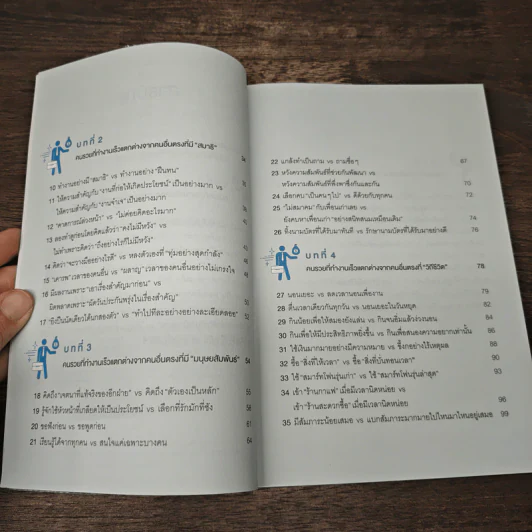 บทที่ 2
คนรวยที่ทำงานเร็วแตกต่างจากคนอื่นตรงที่มี "สมาธิ"
10 ทำงานอย่างมี "สมาธิ" vs ทำงานอย่าง "ฝืนทน"
11 ให้ความสำคัญกับ "งานที่ก่อให้เกิดประโยชน์" เป็นอย่างมาก vs
ให้ความสำคัญกับ "งานจำเจ" เป็นอย่างมาก
12 "คาดการณ์ล่วงหน้า" vs "ไม่ค่อยคิดอะไรมาก"
13 ลองทำดูก่อนโดยคิดแล้วว่า "คงไม่มีหวัง" vs
ไม่ทำเพราะคิดว่า "ถึงอย่างไรก็ไม่มีหวัง"
14 คิดว่า "จะวางมืออย่างไรดี" vs หลงตัวเองที่ "ทุ่มอย่างสุดกำลัง"
15 "เคารพ" เวลาของคนอื่น vs "ผลาญ" เวลาของคนอื่นอย่างไม่เกรงใจ
16 มีผลงานเพราะ "เอาเรื่องสำคัญมาก่อน" vs
ผิดพลาดเพราะ "ผัดวันประกันพรุ่งในเรื่องสำคัญ"
17 "ยิงปืนนัดเดียวได้นกสองตัว" vs "ทำไปทีละอย่างอย่างละเอียดลออ" 52
บทที่ 3
คนรวยที่ทำงานเร็วแตกต่างจากคนอื่นตรงที่มี "มนุษยสัมพันธ์" 54
18 คิดถึง "เจตนาที่แท้จริงของอีกฝ่าย" vs คิดถึง "ตัวเองเป็นหลัก" 55
19 รู้จักใช้หัวหน้าที่เกลียดให้เป็นประโยชน์ vs เลือกที่รักมักที่ชัง
20 ขอฟังก่อน vs ขอพูดก่อน 61
21 เรียนรู้ได้จากทุกคน vs สนใจแค่เฉพาะบางคน 64
22 แกล้งทำเป็นถาม vs ถามซื่อๆ 67
23 หวังความสัมพันธ์ที่ช่วยกันพัฒนา vs
หวังความสัมพันธ์ที่พึ่งพาซึ่งกันและกัน 70
24 เลือกคบ "เป็นคนๆ ไป" vs ดีด้วยกับทุกคน 72
25 "ไม่สมาคม" กับเพื่อนเก่าเลย vs
ยังคบหาเพื่อนเก่า "อย่างสนิทสนมเหมือนเดิม" 74
26 ทิ้งนามบัตรที่ได้รับมาทันที vs รักษานามบัตรที่ได้รับมาอย่างดี 76
บทที่ 4
คนรวยที่ทำงานเร็วแตกต่างจากคนอื่นตรงที่ "วิถีชีวิต" 78
27 นอนเยอะ vs ลดเวลานอนเพื่องาน 79
28 ตื่นเวลาเดียวกันทุกวัน vs นอนเยอะในวันหยุด 82
29 กินน้อยเพื่อให้สมองยังแล่น vs กินจนอิ่มแล้วง่วงนอน 84
30 กินเพื่อให้มีประสิทธิภาพยิ่งขึ้น vs กินเพื่อสนองความอยากเท่านั้น 86
31 ใช้เงินมากมายอย่างมีความหมาย vs ซื้อทุกอย่างไร้เหตุผล 88
32 ซื้อ "สิ่งที่ให้เวลา" vs ซื้อ "สิ่งที่บั่นทอนเวลา"
33 ใช้ "สมาร์ทโฟนรุ่นเก่า" vs ใช้ "สมาร์ทโฟนรุ่นล่าสุด"
34 เข้า "ร้านกาแฟ" เมื่อมีเวลานิดหน่อย vs
เข้า "ร้านสะดวกซื้อ" เมื่อมีเวลานิดหน่อย 96
35 มีสัมภาระน้อยเสมอ vs แบกสัมภาระมากมายไปไหนมาไหนอยู่เสมอ 99